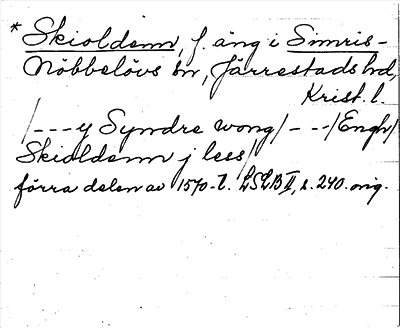 * Skioldemn, f. äng i Simris-
Nöbbelövs sn, Järrestads hd,
Krist. l.
/---y Syndre wong/---/Engh/
Skioldemn j lees/
förra delen av 1570-t. LSLB II, s. 240. orig.